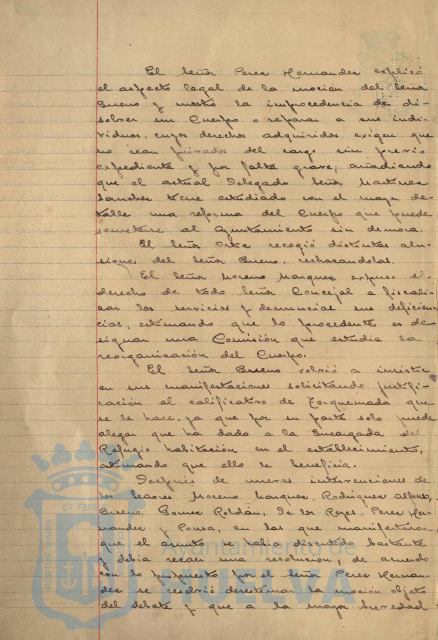 El Señor Perez Hernandez explicó
el aspecto legal de la mocion del Señor
Bueno y mostró la improcedencia de di-
solver un Cuerpo o separar a sus indi-
viduos, cuyos derechos adquiridos exigen que
no sean privados del cargo sin previo
expediente y por falta grave, añadiendo
que el actual Delegado Señor Martinez
Sanchez tiene estudiado con el mayor de-
talle una reforma del Cuerpo que puede
someterse al Ayuntamiento sin demora.
El Señor Orta recogió distintas alu-
siones del Señor Bueno, rechazandolas.
El Señor Moreno Marquez expuso el
derecho de todo Señor Concejal a fiscali-
zar los servicios y denunciar sus deficien-
cias, estimando que lo procedente es de-
signar una Comisión que estudie la
reorganización del Cuerpo.
El Señor Bueno volvió a insistir
en sus manifestaciones solicitando justifi-
cación al calificativo de Torquemada que
se le hace, ya que por su parte solo puede
alegar que ha dado a la Encargada del
Refugio habitación en el establecimiento,
estimando que ello le beneficia.
Despues de nuevas intervenciones de
los Señores Moreno Marquez, Rodriguez Alfonso,
Bueno, Gomez Roldán, de los Reyes, Perez Her-
nandez y Ponce, en las que manifestaron
que el asunto se habia discutido bastante
y debia recaer una resolución, de acuerdo
con lo propuesto por el Señor Perez Hernan-
dez se resolvió desestimar la moción objeto
del debate y que a la mayor brevedad
Ayuntamiento de
HUELVA